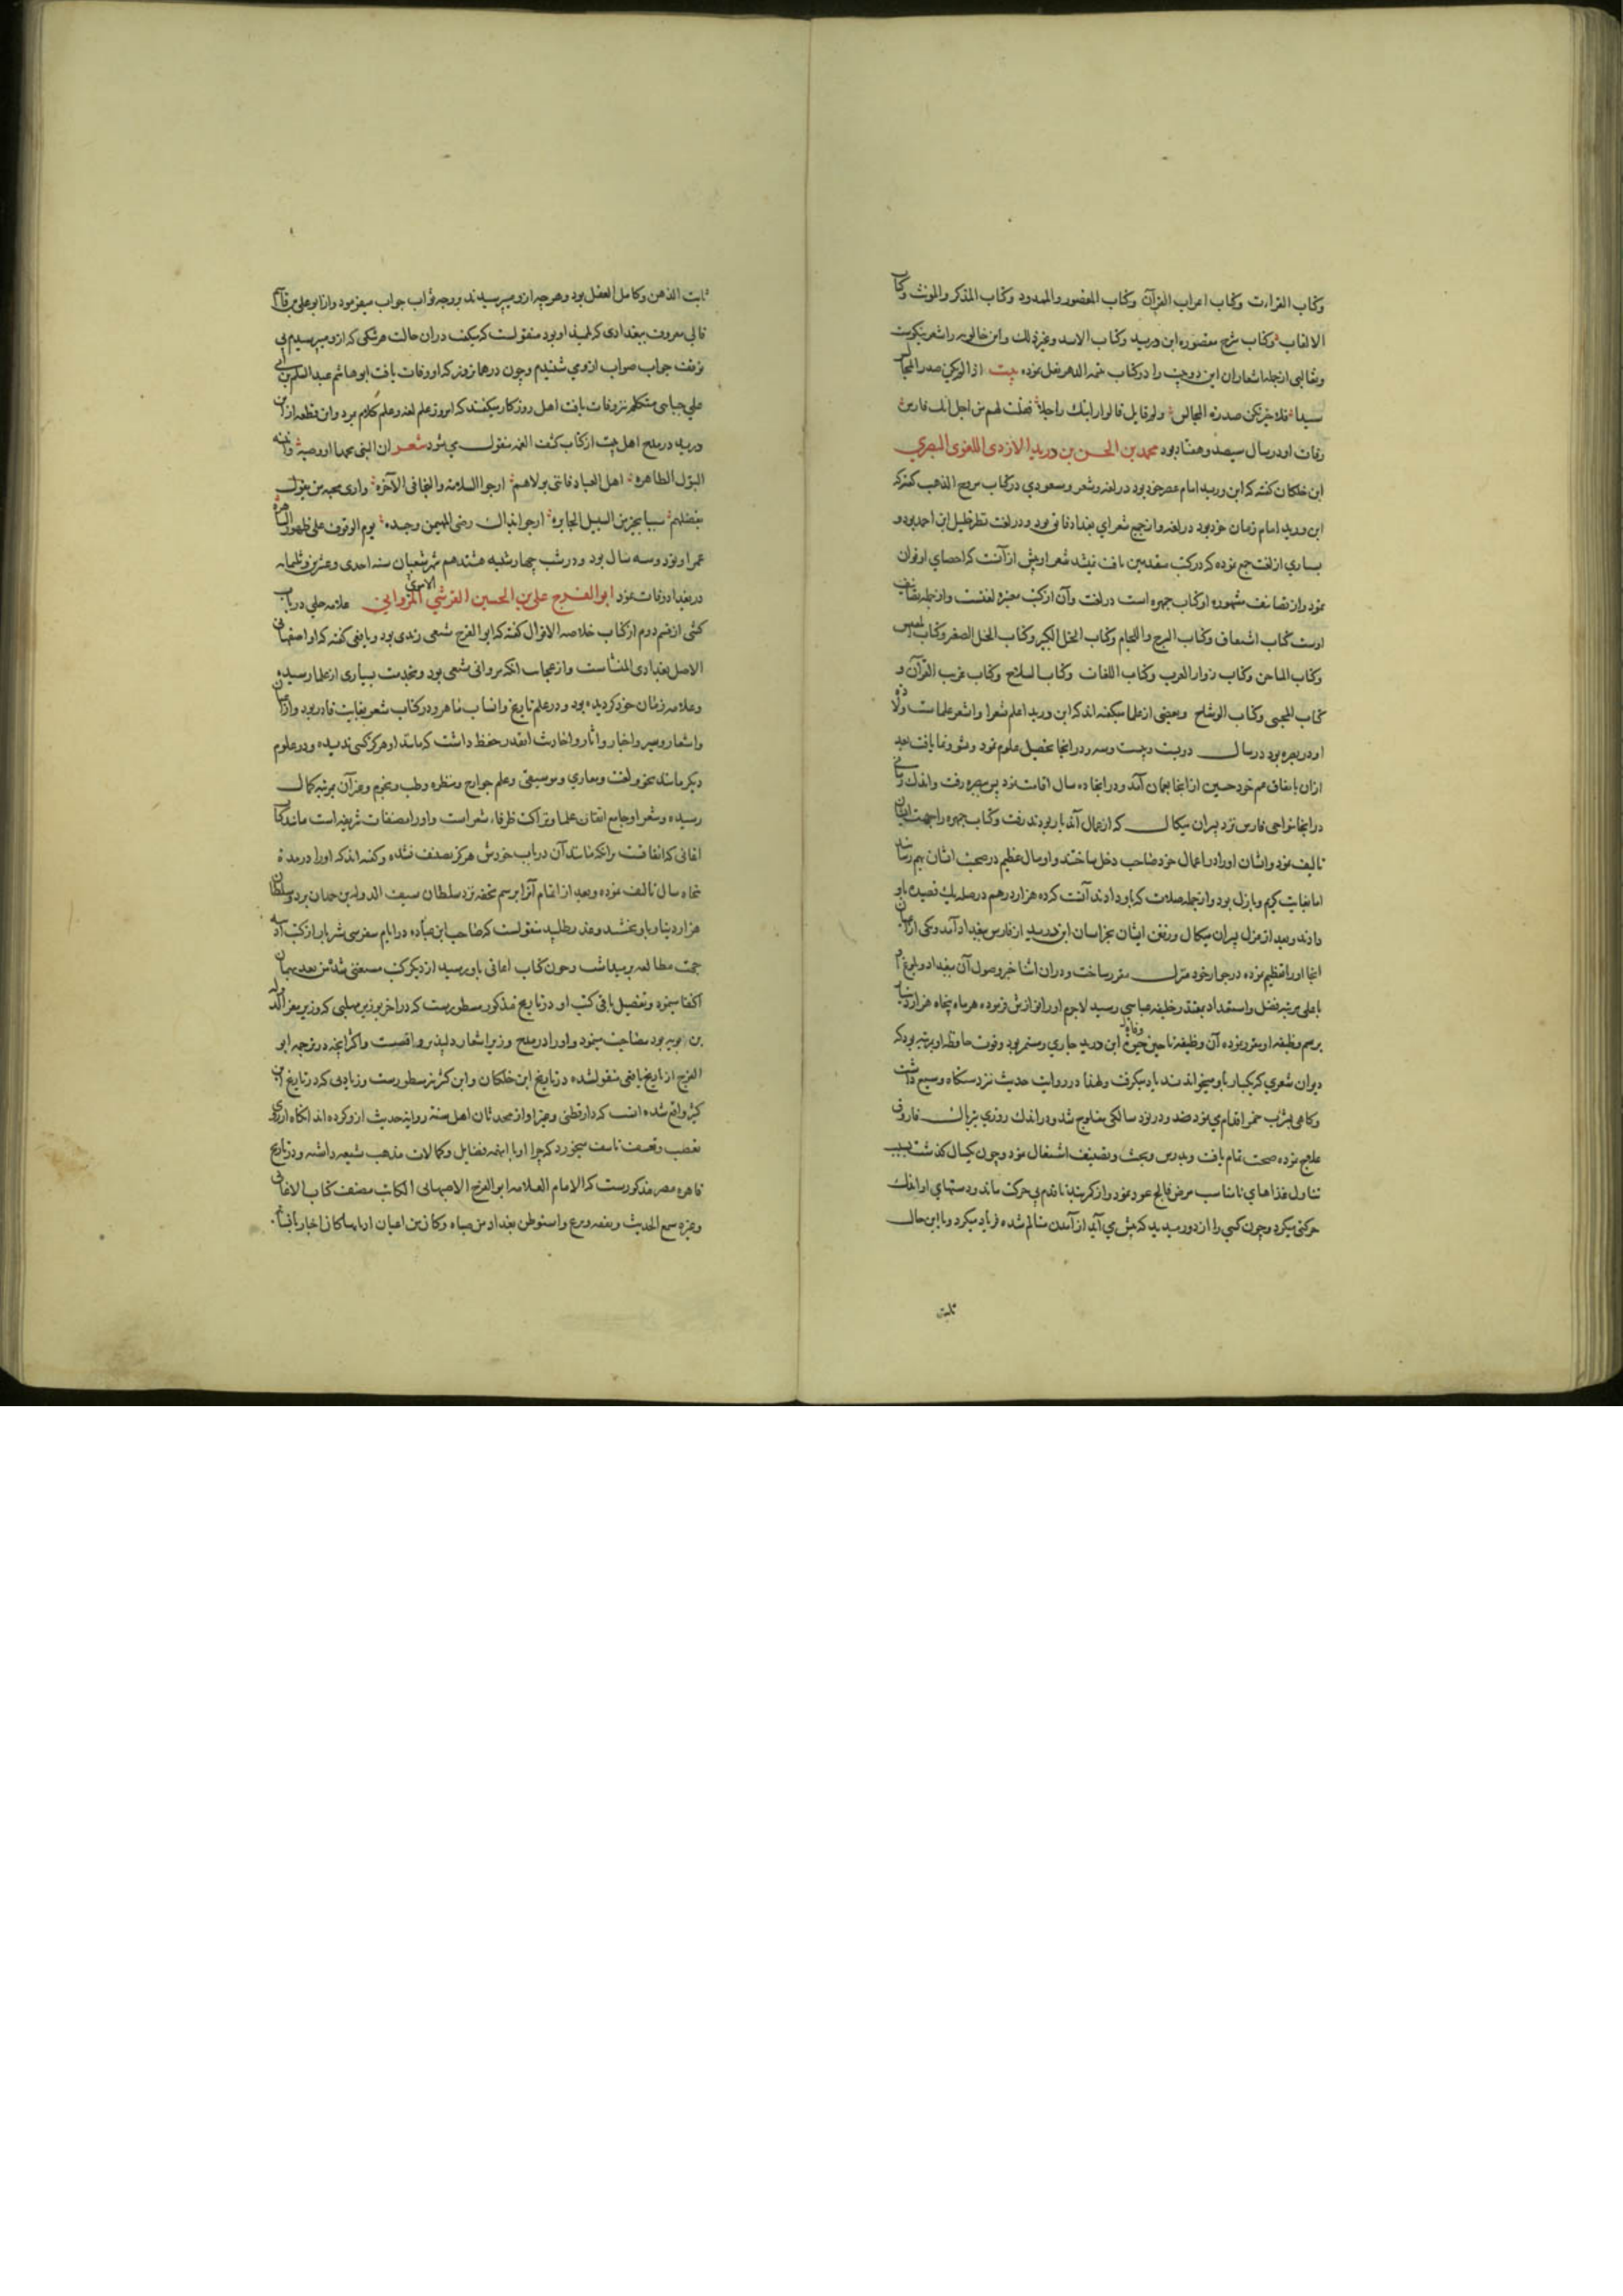 وکتاب القراءت وکتاب اعراب القرآن وکتاب المقصور والممدود وکتاب المذکر والمونث وکتاب
الالقاب وکتاب شرح مقصوره ابن درید وکتاب الاسد وغیر ذلک وابن خالویه را شعر نیکوست
وثعالبی از جمله اشعار او این دو بیت را در کتاب یتیمة الدهر نقل نموده بیت اذا لم یکن صدر المجالس
سیدا فلا خیر فیمن صدرته المجالس وکم قایل قالوا رایتک راجلا فقلت لهم من اجل انک فارس
وفات او در سال سیصد وهفتاد بود محمد بن الحسن بن درید الازدی اللغوی البصری
ابن خلکان گفته که ابن درید امام عصر خود بود در لغه وشعر ومسعودی در کتاب مروج الذهب گفته که
ابن درید امام زمان خود بود در لغه واز جمیع شعرای بغداد فایق بود ودر لغت نظر خلیل ابن احمد بود و
بسیاری از لغت جمع نموده که در کتب متقدمین یافت نمیشد شعر او بیش از آنست که احصای او توان
نمود واز تصانیف مشهوره او کتاب جمهره است در لغت وآن از کتب معتبره لغتست واز جمله تصانیف
اوست کتاب اشتقاق وکتاب السرج واللجام وکتاب الخیل الکبیر وکتاب الخیل الصغیر وکتاب
وکتاب الملاحن وکتاب زوار العرب وکتاب اللغات وکتاب السلاح وکتاب غریب القرآن و
کتاب المجتبی وکتاب الوشاح وبعضی از علما میگفته اند که ابن درید اعلم شعرا واشعر علماست ولادت
او در بصره بود در سال دویست وبیست وسه ودر انجا تحصیل علوم نمود ونشو ونما یافت بعد
ازان باتفاق عم خود حسین از انجا بعمان آمد ودر انجا ده سال اقامت نمود پس ببصره رفت واندک زمانی
در انجا بنواحی فارس نزد پسران میکال که از عمال آن دیار بودند رفت وکتاب جمهره را جهت ایشان
تالیف نمود وایشان او را در اعمال خود صاحب دخل ساختند واموال عظیم در صحبت ایشان بهم رسانید
اما بغایت کریم وباذل بود واز جمله صلات که باو دادند آنست که ده هزار درهم در صله یک قصیده باو
دادند وبعد از عزل پسران میکال ورفتن ایشان بخراسان ابن درید از فارس ببغداد آمد ویکی از اعیان
انجا او را تعظیم نموده در جوار خود منزل مقرر ساخت ودران اثنا خبر وصول آن ببغداد وبلوغ او
باعلی مرتبه فضل واستعداد بمقتدر خلیفه عباسی رسید لاجرم او را نوازش فرموده هر ماه پنجاه هزار دینار
برسم وظیفه او مقرر نموده آن وظیفه تا حین وفات ابن درید جاری ومستمر بود وقوت حافظه او بمرتبه بود که
دیوان شعری که یکبار باو میخواندند یاد میگرفت ولهذا در روایت حدیث نزد دستگاه وسیع داشت
وگاهی بشرب خمر اقدام می نمود ودر نود سالگی مفلوج شد ودر اندک روزی بتریاک فاروق
علاج نموده صحت تمام یافت وبدرس وبحث وتصنیف اشتغال نمود وچون یکسال گذشت بسبب
تناول غذاهای نامناسب مرض فالج عود نمود واز کمر بند تا قدم بی حرکت ماند ودستهای او اندک
حرکتی میکرد وچون کسی را از دور میدید که پیش می آید از آمدن متالم شده فریاد میکرد وبا این حال
ثابت
ثابت الذهن وکامل العقل بود وهرچه ازو میپرسیدند بر وجه ثواب جواب میفرمود واز ابو علی بن قاسم
قالی معروف ببغدادی که تلمیذ او بود منقولست که میگفت دران حالت هر شکی که ازو میپرسیدم بی
توقف جواب صواب ازو می شنیدم وچون در همان روز که او وفات یافت ابو هاشم عبد السلام بن ابی
علی جبایی متکلم نیز وفات یافت اهل روزگار میگفتند که امروز علم لغه وعلم کلام مرد واین قطعه از ابن
درید در مدح اهل بیت از کتاب کشف الغمه منقول می شود شعر ان النبی محمدا ووصیه وابنیه
البتول الطاهره اهل العبا فانی بولائهم ارجو السلامه والنجا فی الآخره واری محبه من یقول
بفضلهم سببا یجیر من السبیل الجایره ارجو بذاک رضی المهیمن وحده یوم الوقوف علی ظهور الساهره
عمر او نود وسه سال بود ودر شب چهارشنبه هشتدهم شهر شعبان سنه احدی وعشرین وثلثمایه
در بغداد وفات نمود ابو الفرج علی بن الحسین القرشی الاموی المروانی علامه حلی در باب
کنی از قسم دوم از کتاب خلاصه الاقوال گفته که ابو الفرج شیعی زیدی بود ویافعی گفته که او اصفهانی
الاصل بغدادی المنشاست واز عجایب آنکه مروانی شیعی بود وبخدمت بسیاری از علما رسیده
وعلامه زمان خود گردیده بود ودر علم تاریخ وانساب ماهر ودر کتاب شعر بغایت قادر بود واز اغانی
واشعار وسیر واخبار واثار واحادیث انقدر حفظ داشت که مانند او هرگز کسی ندیده ودر علوم
دیگر مانند نحو ولغت ومغازی وموسیقی وعلم جوارح وبیطره وطب ونجوم وغیر آن بمرتبه کمال
رسیده وشعر او جامع اتقان علما ونزاکت ظرفاء شعراست واو را مصنفات شریفه است مانند کتاب
اغانی که اتفاقست برآنکه مانند آن در باب خودش هرگز تصنیف نشده وگفته اند که او را در مدة
پنجاه سال تالیف نموده وبعد از اتمام آنرا برسم تحفه نزد سلطان سیف الدوله بن حمدان برد وسلطان
هزار دینار باو بخشید وعذر طلبید منقولست که صاحب ابن عباد در ایام سفر سی شتر بار از کتب ادبیه
جهت مطالعه برمیداشت وچون کتاب اغانی باو رسید از دیگر کتب مستغنی شد من بعد بهمان
اکتفا مینمود وتفصیل باقی کتب او در تاریخ مذکور مسطورست که در اخر بوزیر مهلبی که وزیر معز الدوله
بن بویه بود مصاحبت مینمود واو را در مدح وزیر اشعار دلپذیر واقعست واکثر آنچه در ترجمه ابو
الفرج از تاریخ یافعی منقولشده در تاریخ ابن خلکان وابن کثیر نیز مسطورست وزیادتی که در تاریخ ابن
کثیر واقع شده انست که دارقطنی وغیر او از محدثان اهل سنت روایة حدیث ازو کرده اند انگاه از روی
تعصب وتعسف تاسف میخورد که چرا او با اینهمه فضایل وکمالات مذهب شیعه داشته ودر تاریخ
قاهره مصر مذکورست که الامام العلامه ابو الفرج الاصبهانی الکاتب مصنف کتاب الاغانی
وغیره سمع الحدیث وتفقه وبرع واستوطن بغداد من صباه وکان من اعیان ادبایها کان اخباریا نسابا